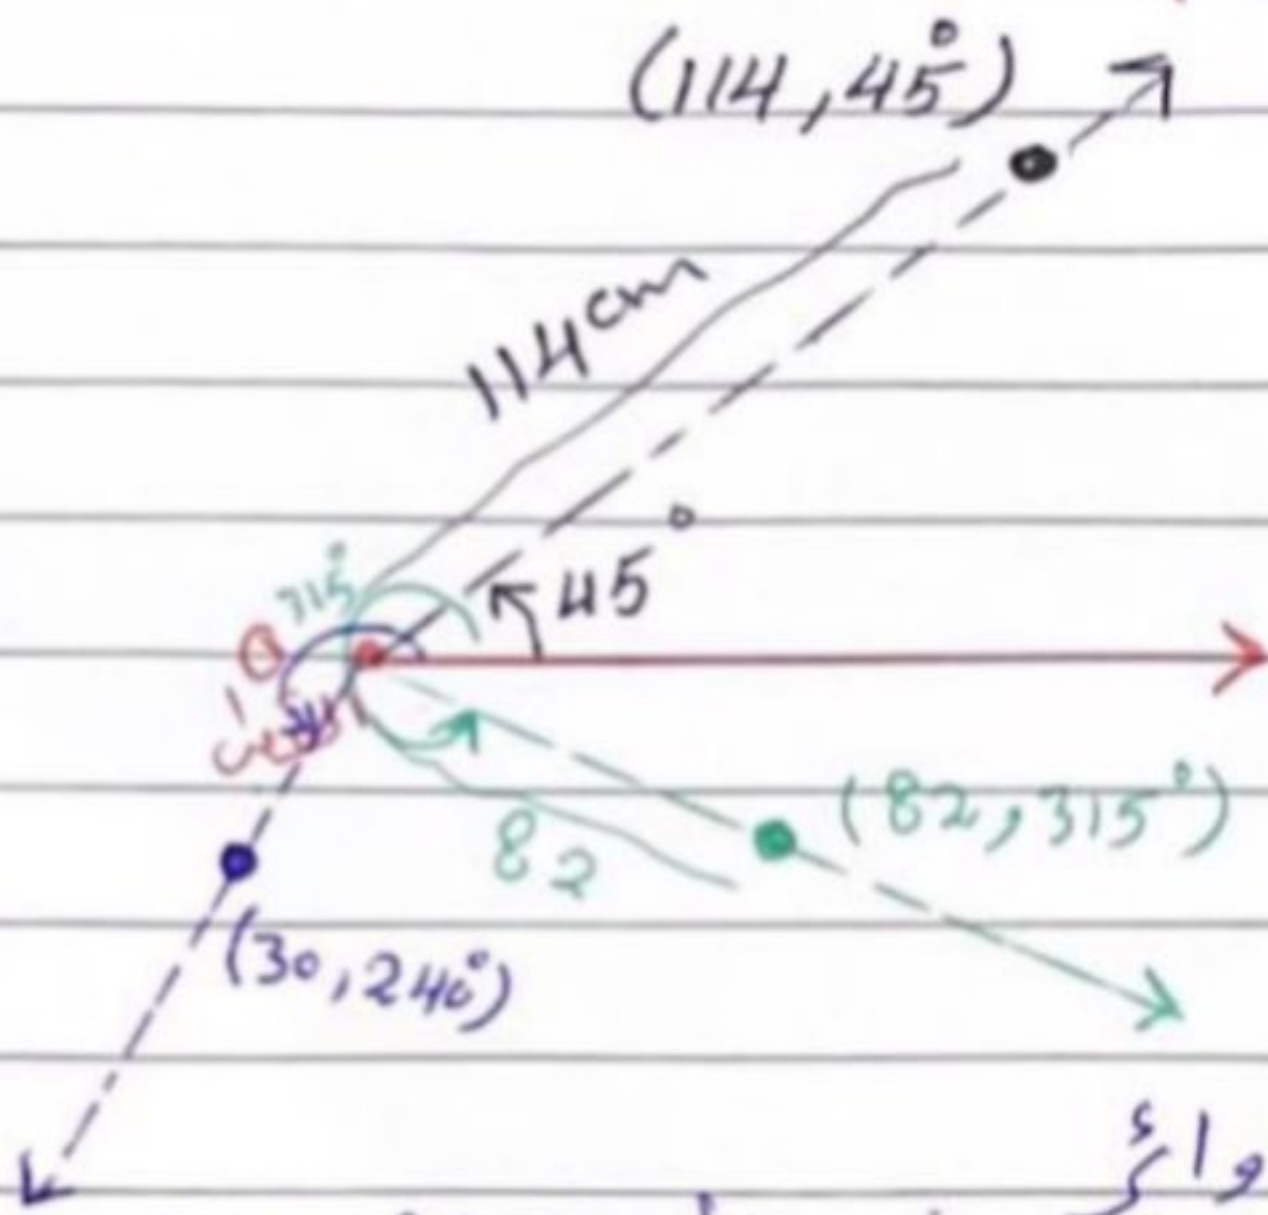 (114,45°)
114cm
45°
315°
θ
82
(82,315°)
(30,240°)